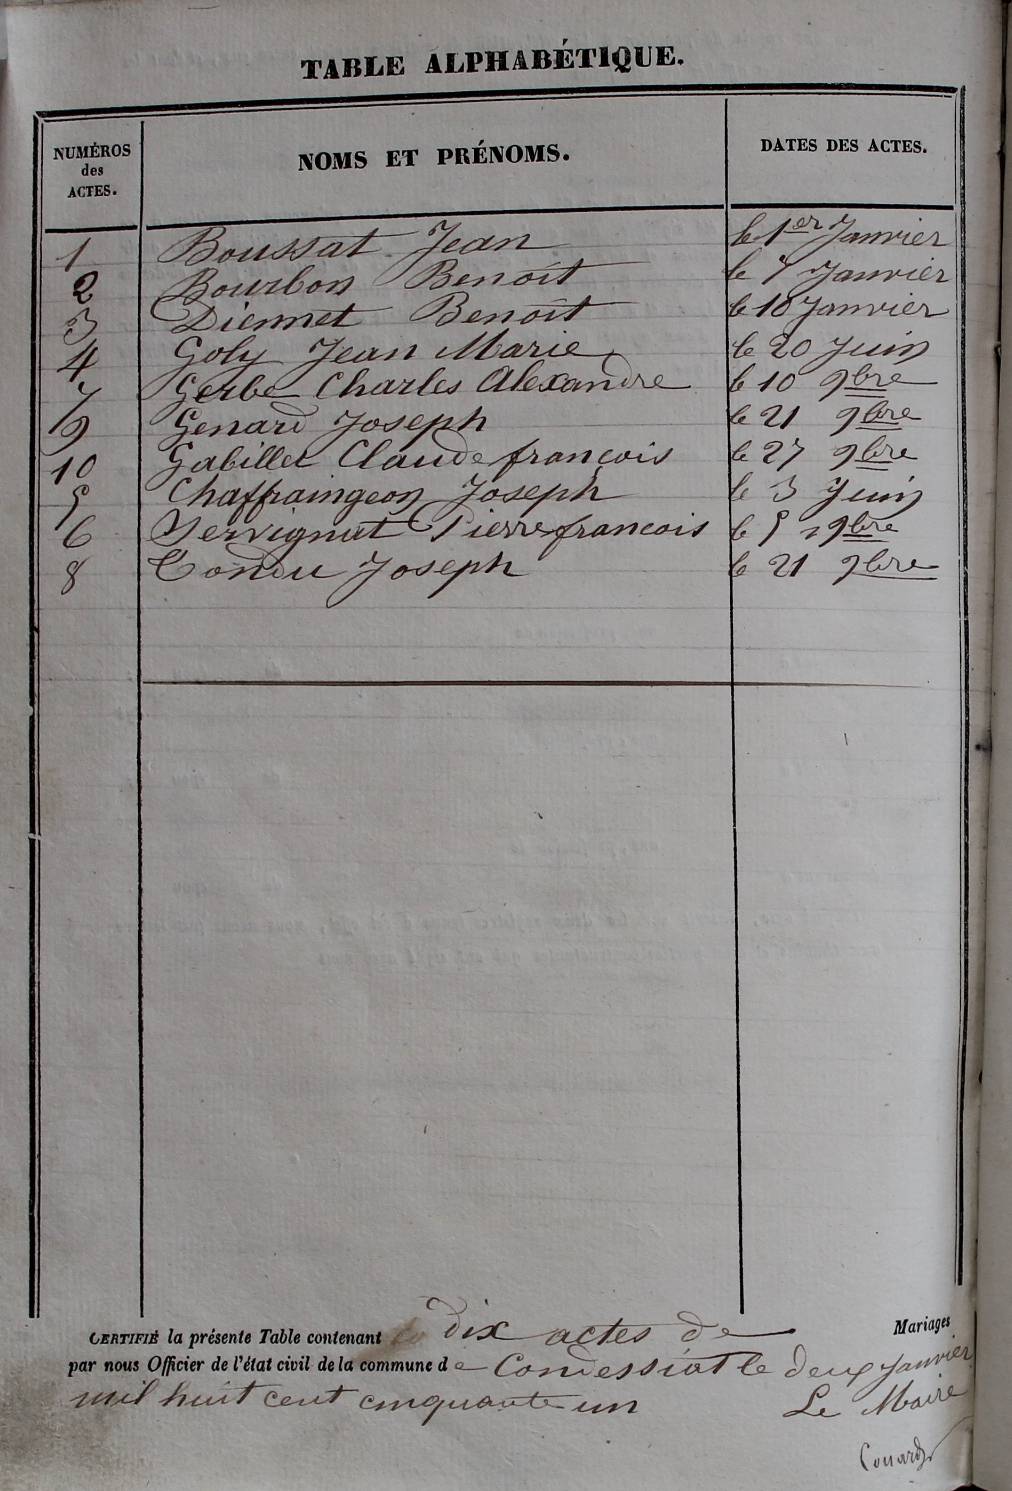 TABLE ALPHABÉTIQUE.
NUMÉROS des ACTES. NOMS ET PRÉNOMS. DATES DES ACTES.
1 Boussat Jean le 1er Janvier
2 Bourbon Benoit le 7 Janvier
3 Diennet Benoît le 10 Janvier
4 Goly Jean Marie le 20 Juin
7 Gerbe Charles Alexandre le 10 9bre
9 Genard Joseph le 21 9bre
10 Gabillet Claude francois le 27 9bre
5 Chaffraingeon Joseph le 3 Juin
6 Servignat Pierre francois le 5 9bre
8 Tondu Joseph le 21 9bre
CERTIFIÉ la présente Table contenant dix actes de Mariages
par nous Officier de l'état civil de la commune de Condessiat le deux Janvier
mil huit cent cinquante un Le Maire